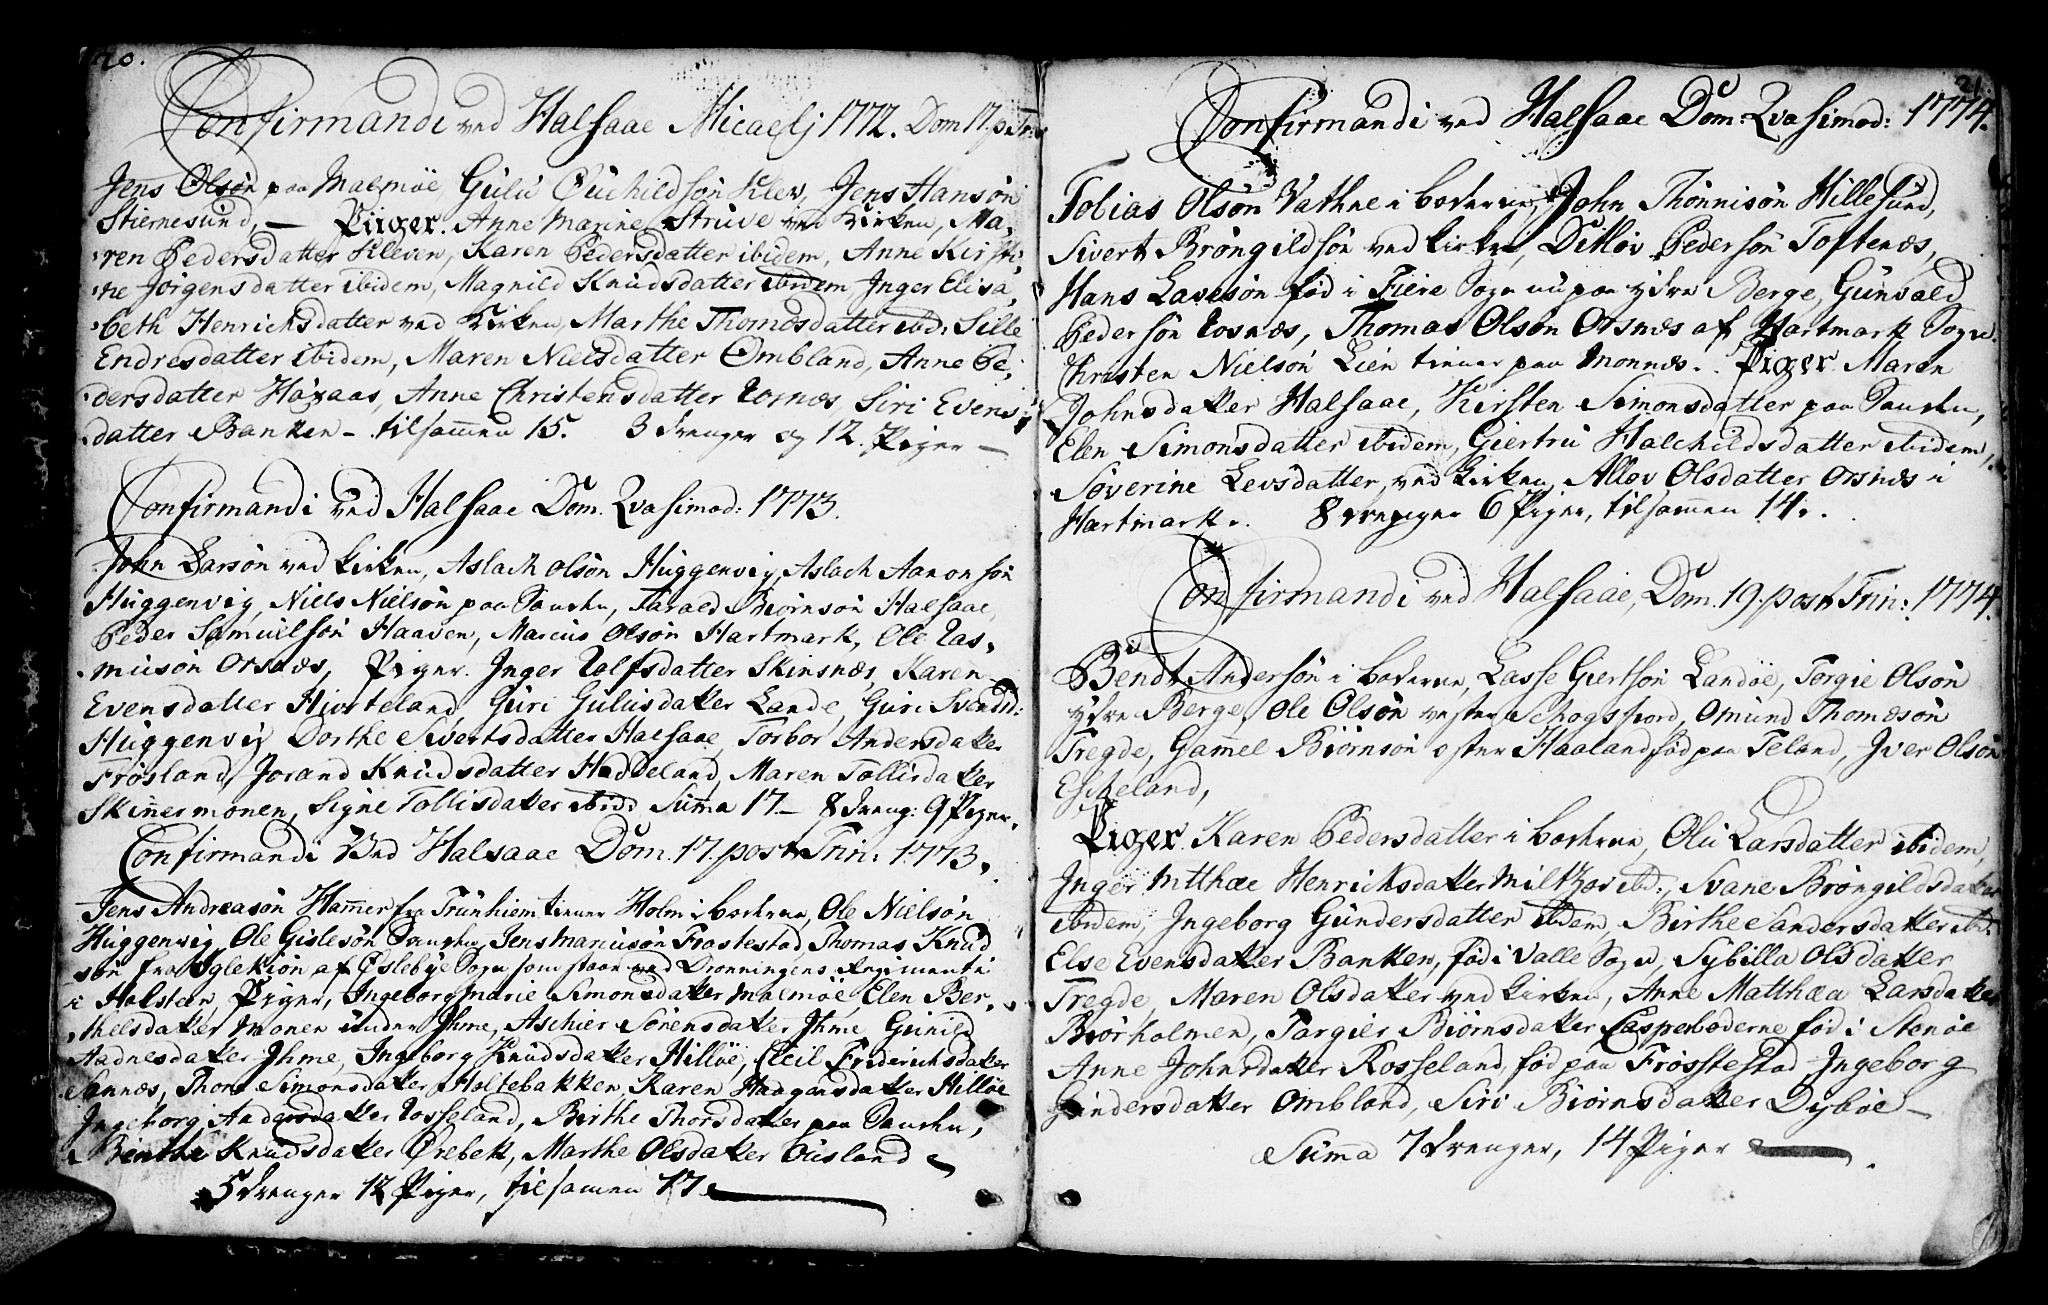 20.
Confirmandi ved Halsaae Micaelj 1772. Dom 17. p. Trin
Jens Olsøn paa Malmöe, Guliu Ouchildsøn Klev, Jens Hansøn
Stiernesund, — Piiger. Anne Marine Struve ved Kirken, Ma-
ren Pedersdatter Kleven, Karen Pedersdatter ibidem, Anne Kirsti-
ne Jörgensdatter ibidem, Magnild Knudsdatter ibidem Inger Elisa-
beth Henrichsdatter ved Kirken, Marthe Thomesdatter ibd: Sille
Endresdatter ibidem, Maren Nielsdatter Ømbland, Anne Pe-
dersdatter Haxaas, Anne Christensdatter Rosnæs, Siri Evens-
datter Banken – tilsammen 15. 3 drenger og 12. Piger —
Confirmandi ved Halsaae Dom. Qvasimod: 1773.
John Larsøn ved kirken, Aslach Olsøn Huggenvig, Aslach Aanonsøn
Huggenvig, Niels Nielsøn paa Sanden, Tarald Biørnsøn Halsaae,
Peder Samuelsøn Haaven, Marcus Olsøn Hartmark, Ole Ras-
musøn Orsnæs, Piger. Inger Rolfsdatter Skinsnæs, Karen
Evensdatter Hiorteland, Guri Guliisdatter Lande, Guri Svendsd:
Huggenvig Dorthe Sivertsdatter Halsaae, Torbor Andersdatter
Frøsland, Jorand Knudsdatter Haddeland, Maren Tollisdatter
Skinnermonen, Signe Tollisdatter ibid: Summa 17 – 8 dreng: 9 Piger.
Confirmandi Ved Halsaae Dom. 17. post Trin: 1773.
Jens Andreasøn Hammer fra Trunhiem tiener Holm i boderne, Ole Nielsøn
Huggenvig, Ole Gislesøn Sanden, Jens Mariusøn Frostestad, Thomas Knud
søn fra Iglekiøn af Øslebye Sogn som staar ved Dronningens Regimente
i Holsten, Piger, Ingeborg Marie Simonsdatter Malmöe, Elen Ber-
thelsdatter Monen under Ihme, Aschier Sörensdatter Ihme, Gunild
Aadnesdatter Ihme, Ingeborg Knudsdatter Hilløe, Cecil Friderichsdatter
Sannæs, Thore Simonsdatter Holtebakken, Karen Haagensdatter Hilløe
Ingeborg Andersdatter Rosseland, Birthe Thorsdatter paa Sanden,
Birthe Knudsdatter Ørebek, Marthe Olsdatter Ouisland
5 drenger 12 Piger, tilsamen 17.
21.
Confirmandi ved Halsaae Dom: Qvasimod: 1774.
Tobias Olsøn Vathne i boderne, John Thönnisøn Hillesund,
Sivert Bröngildsøn ved kirken, Ditlöv Pedersøn Toftenæs,
Hans Lavesøn fød i Fiere Sogn nu paa ydre Berge, Gunvald
Pedersøn Rosnæs, Thomas Olsøn Orsnæs af Hartmark Sogn.
Christen Nielsøn Lien tiener paa Monnæs. Piger Maren
Johnsdatter Halsaae, Kirsten Simonsdatter paa Sanden,
Elen Simonsdatter ibidem, Giertru Halchildsdatter ibidem,
Söverine Levsdatter ved kirken, Allov Olsdatter Orsnæs i
Hartmark. 8 drenger 6 Piger, tilsammen 14.
Confirmandi ved Halsaae, Dom. 19. post Trin: 1774.
Bendt Andersøn i boderne, Lasse Giertsøn Landöe, Torgie Olsøn
ydre Berge, Ole Olsøn vester Schogsfiord, Omund Thomæsøn
Tregde, Gammel Biørnsøn øster Haaland fød paa Teland, Jver Olsøn
Escheland,
Piger Karen Pedersdatter i boderne, Oliv Larsdatter ibidem,
Inger Mtthæ Henrichsdatter Miltzov ibd:, Svane Bröngildsdatter
ibidem, Ingeborg Gundersdatter ibidem, Birthe Sandersdatter ibd:
Else Evensdatter Banken, fød i Valle Sogn, Sybilla Olsdatter
Tregde, Maren Olsdatter ved kirken, Anne Matthæa Larsdatter
Biörholmen, Targier Biørnsdatter Casperboderne fød i Stenöe
Anne Johnsdatter Rosseland, fød paa Frösstestad Ingeborg
Gundersdatter Ombland, Siri Biørnsdatter Dyböe —
Summa 7 drenger, 14 Piger